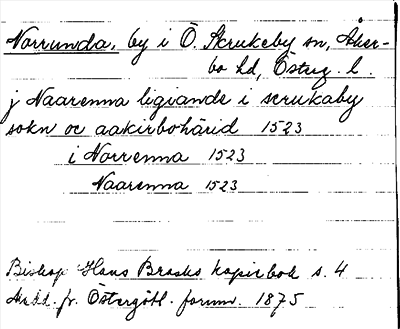 Norrunda, by i Ö. Skrukeby sn, Åker-
bo hd, Östug. l.
j Naarenna ligiande i scrukaby
sokn oc aakirbohärid 1523
i Norrenna 1523
Naarenna 1523
Biskop Hans Brasks kopiebok s. 4
Medd. fr. Östergötl. fornm. 1875